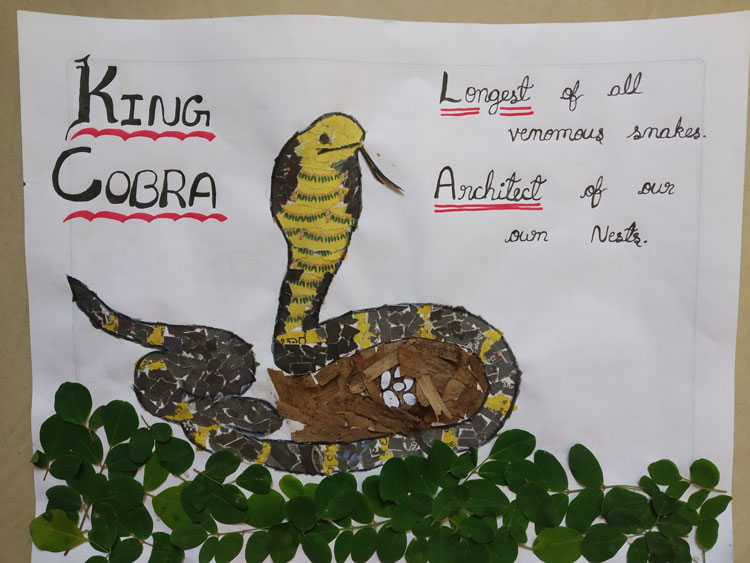 KING
COBRA
Longest of all
venomous snakes.
Architect of our
own Nests.